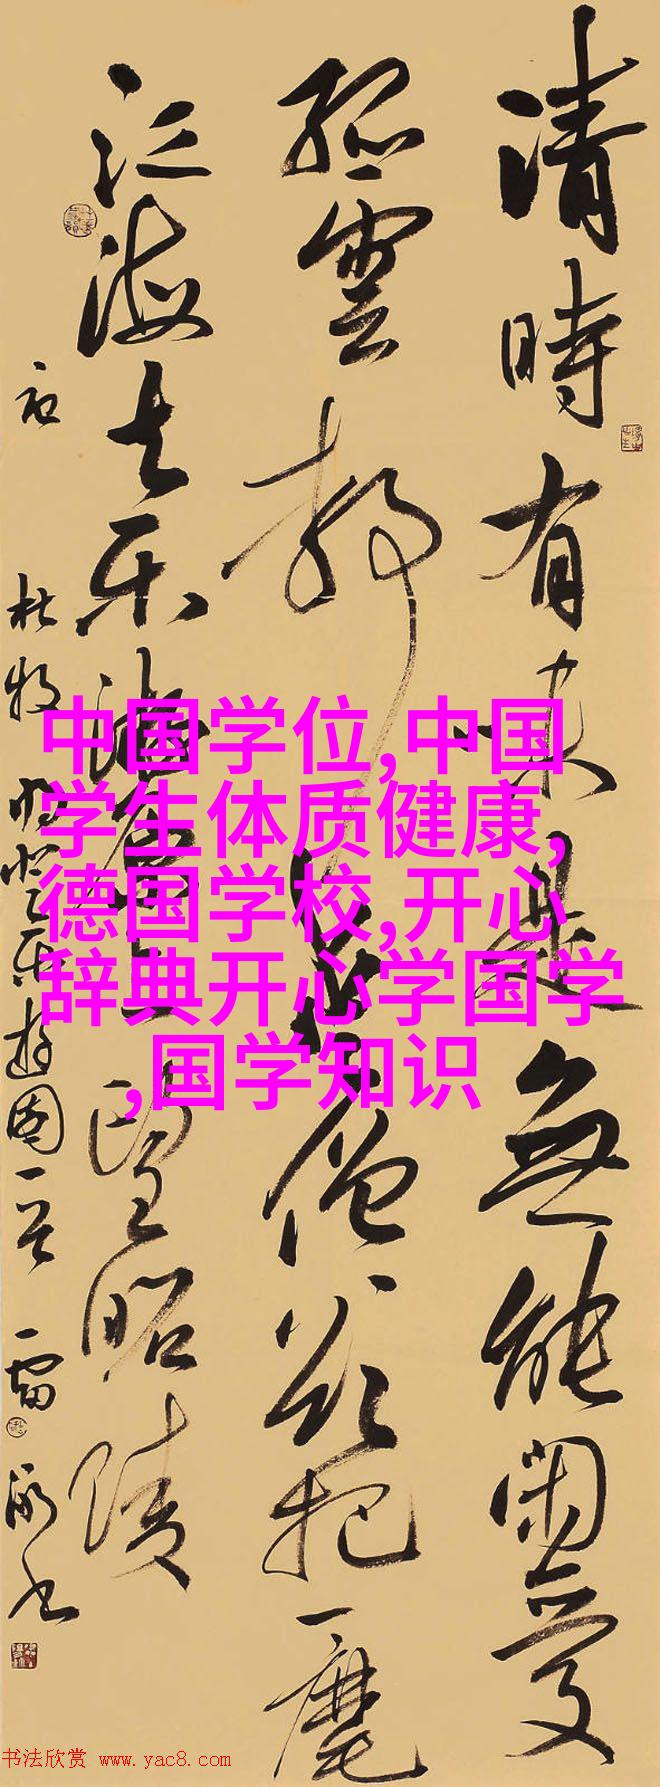 清時有味是無能閑愛
孤雲静愛僧欲把一麾
江海去乐游原上望昭陵
杜牧 登乐游
中国学位,中国
学生体质健康,
德国学校,开心
辞典开心学国学
,国学知识
书法欣赏 www.yac8.com